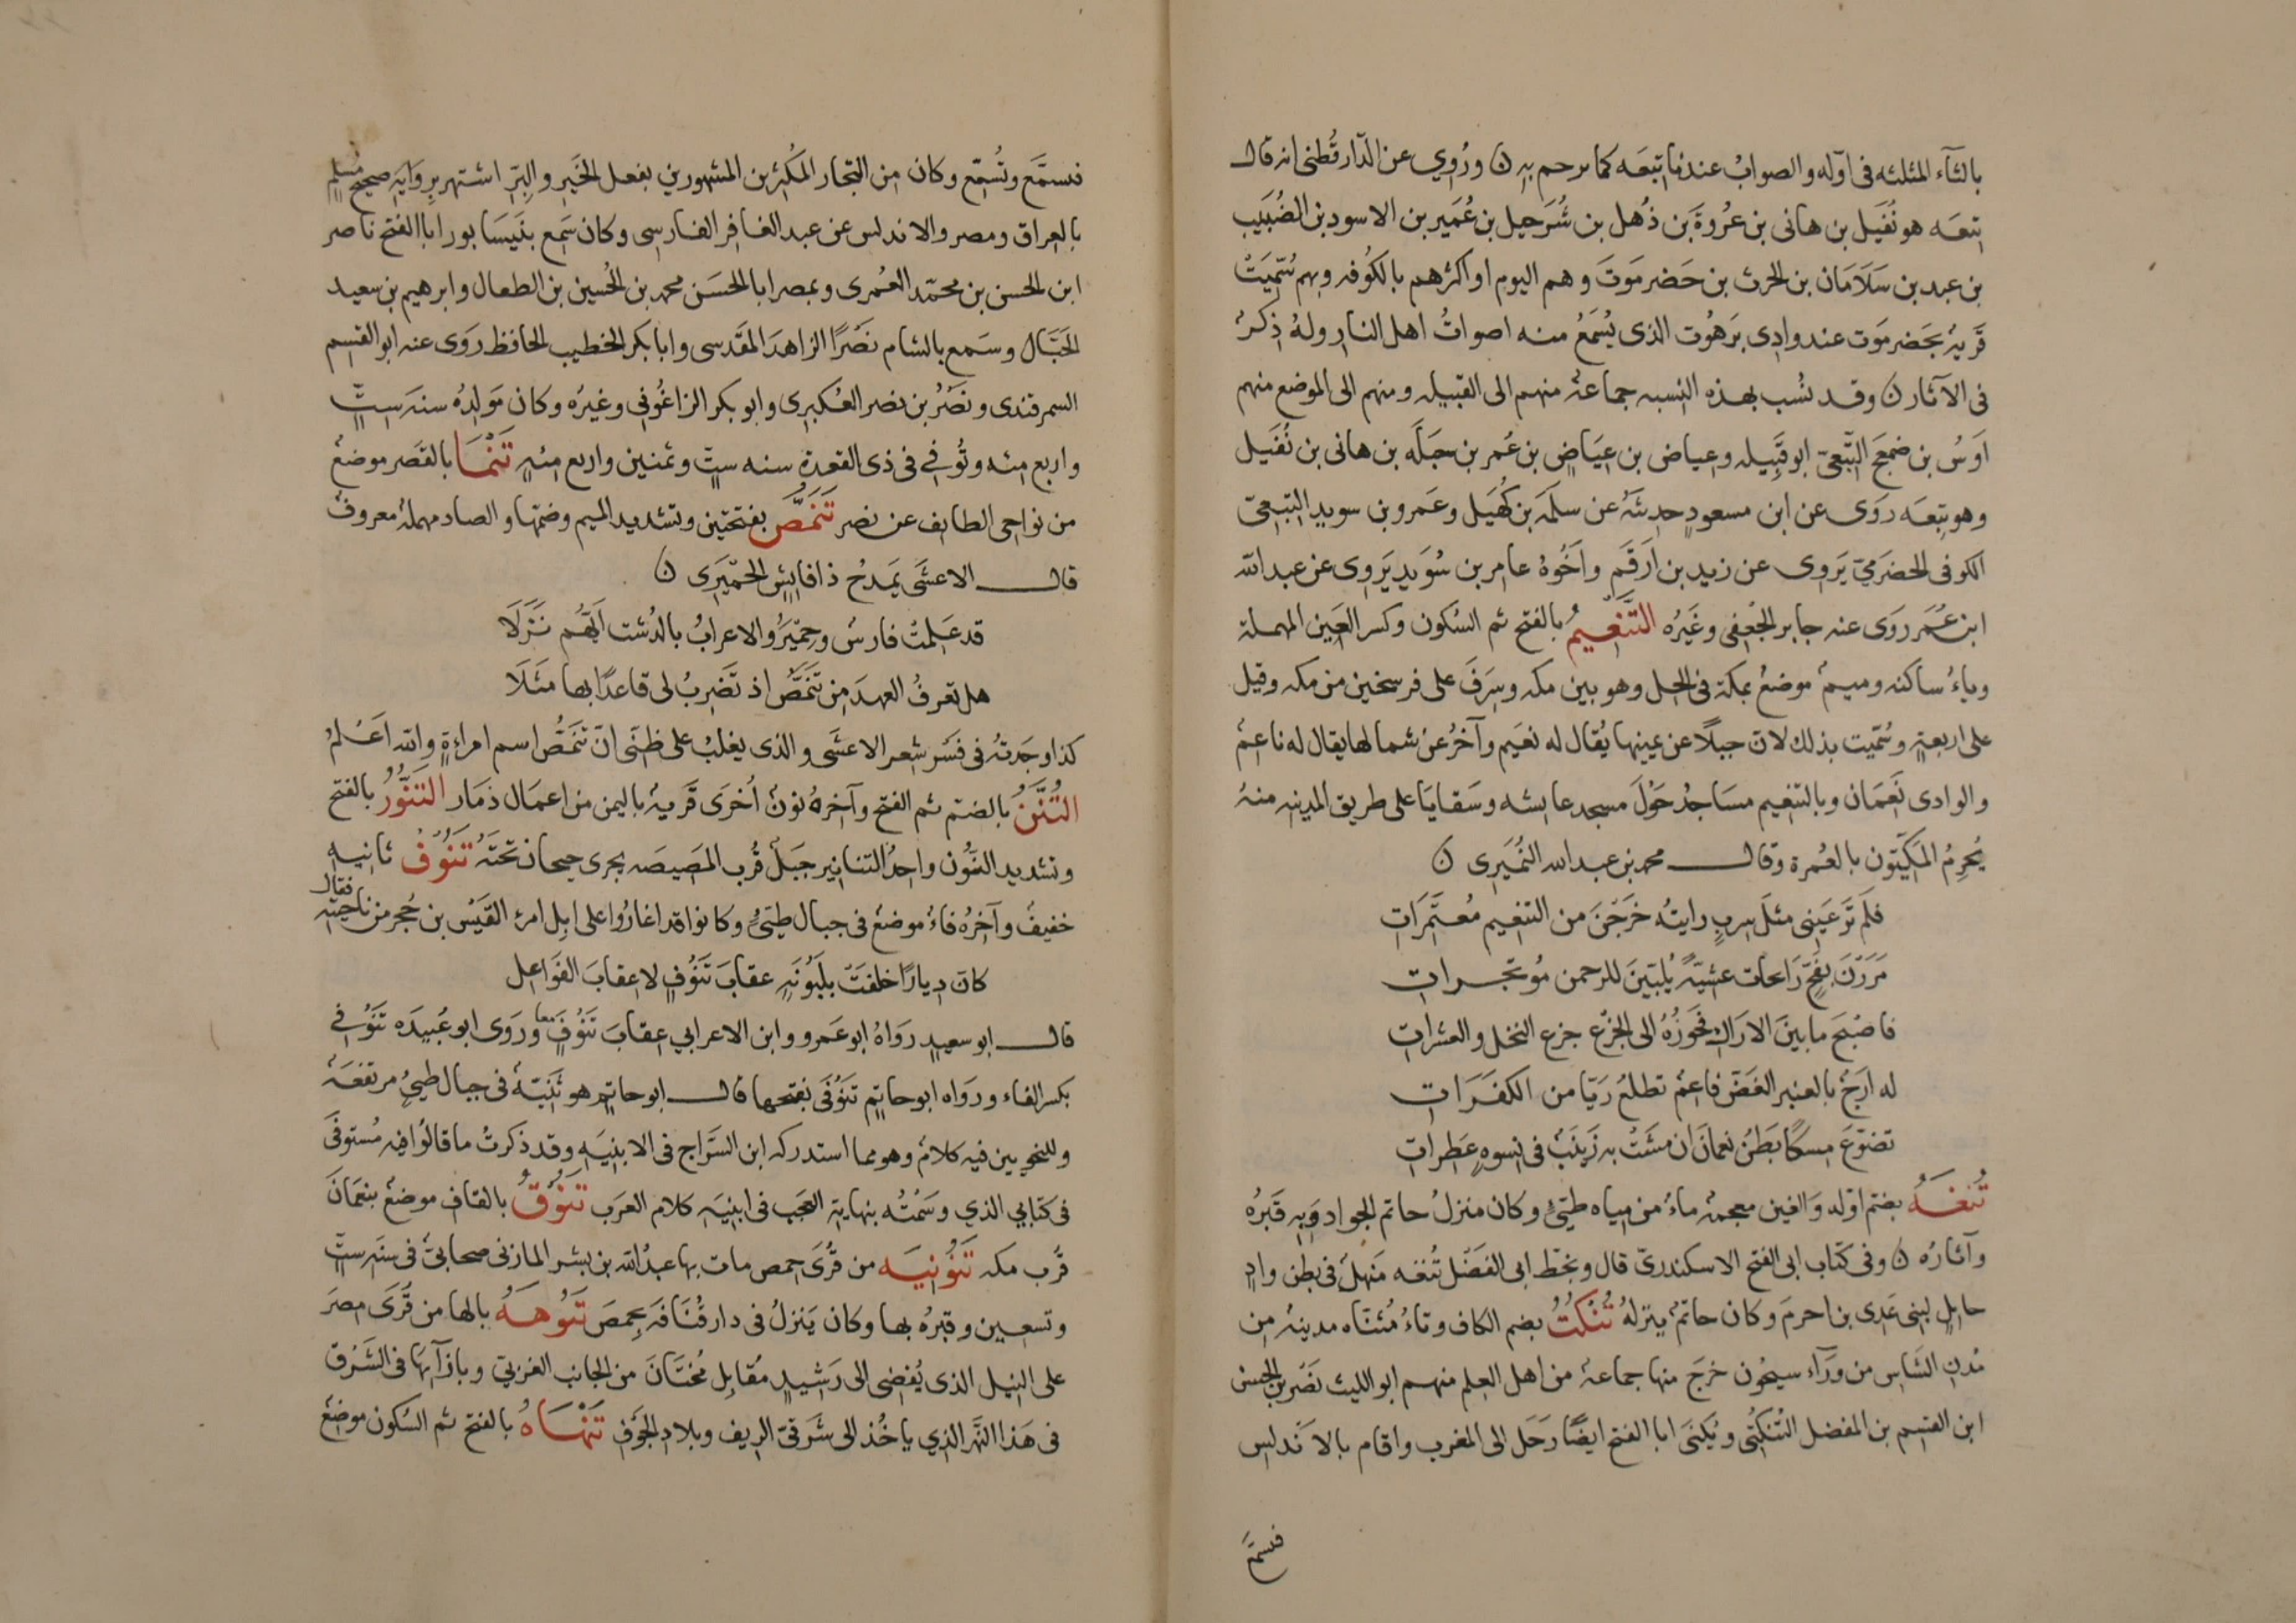 بالثآء المثلثه فى اوّله والصوابُ عندنا تبعَه كما ترجم به ن ورُوِي عن الدّارقُطنى انه قال
تنعَه هو نُفَيل بن هانى بن عُروةَ بن ذُهل بن شُرَحيل بن عُمَير بن الاسود بن الضُبَيب
بن عبد بن سَلَامَان بن الحرث بن حَضرمَوتَ وهم اليوم او اكثرهم بالكُوفه وبهم سُمّيَتْ
قَريةٌ بحَضرمَوت عند وادِى بَرَهُوت الذى يُسمَعُ منه اصواتُ اهل النار ولهُ ذِكرٌ
فى الآثار ن وقد نُسب بهذه النسبه جماعةٌ منهم الى القبيله ومنهم الى الموضع منهم
اَوسُ بن ضمعَج التّبعىّ ابو قَبِيله وعياض بن عيَاضٍ بن عُمر بن جبَلَه بن هانى بن نُفَيل
وهو تبعَه روَى عن ابن مسعودٍ حديثَهُ عن سلَمَه بن كُهَيل وعَمرو بن سويد التبعىّ
الكوفى الحضرميّ يَروِى عن زيد بن اَرقَم واَخُوهُ عامر بن سُوَيد يَروِى عن عبد الله
ابن عُمَر روَى عنه جابر الجُعفى وغَيرُه التَّنعيمُ بالفتح ثم السُكون وكسر العَين المهملة
وياءٌ ساكنه وميمٌ موضعٌ بمكة فى الحِل وهو بين مكه وسَرَف على فرسخين من مكه وقيل
على اربعةٍ وسُمّيت بذلك لانّ جبلًا عن يمينها يُقال له نعَيم وآخرُ عن شمالها يقال له ناعمٌ
والوادى نَعَمَان وبالتنعيم مسَاجدُ حَوْلَ مسجد عايشه وسَقايَا على طريق المدينه منهُ
يُحرِمُ المكّيّون بالعُمرة وقال محمد بن عبد الله النُمَيَرى ن
فلَم تَر عَينِى مثلَ سربٍ رايته خَرَجنَ من التنعيم مُعتَمَرَاتِ
مَرَرْنَ بفَخّ رَائحات عشيّةً يُلبّينَ للرحمن مُوتجراتِ
فاصْبَحَ ما بينَ الارَاك فحَوزُهُ الى الجِزْع جزع النخل والعشراتِ
له اَرَجٌ بالعنبر الغَضّ فاغمٌ تطلعُ رَيّا من الكفَرَاتِ
تضوّعَ مسكًا بَطنُ نعمانَ ان مشَتْ به زَينَبٌ فى نسوةٍ عَطِراتِ
تُنغَهُ بضم اوّله وَالغين معجمةٌ ماءٌ من مياه طيّئ وكان منزلُ حاتم الجوادِ وَبِهِ قَبرُه
وآثارُه ن وفى كتاب ابى الفتح الاسكندرىّ قال وبخطّ ابى الفَضل تُنغه مَنهلٌ فى بطن وادِ
حايلٍ لبنى عَدى بن احرمَ وكان حاتمٌ ينزلهُ تُنْكُتُ بضم الكاف وتاءٌ مُثنّاه مدينةٌ من
مُدن الشَاس من ورَآء سيحُون خرَج منها جماعةٌ من اهل العِلم منهم ابو الليث نَصْر بن الحسن
ابن القسم بن المفضل التُنكتُى ويُكنَى ابا الفتح ايضًا رَحَل الى المغرب واقام بالاَندلس
فسمَّع
فسمَّع وتُسمِّع وكان من التجار المكُثرين المشهورين بفعل الخَير والبِرّ اشتهر بروَايَهِ صحيح مُسلِم
بالعراق ومصر والاندلس عن عبد الغافر الفارسى وكان سَمع بنَيسَابور ابا الفتح ناصر
ابن الحسن بن محمّد العُمرى وبمصر ابا الحَسَن محمد بن الحُسين بن الطفال وابرهيم بن سعيد
الحَبَّال وسَمع بالشام نَصْرًا الزاهدَ المقَدسى وابا بَكر الخطيب الحافظ روَى عنه ابو القسم
السمرقندى ونَصْرُ بن نصر العُكبِرى وابو بكر الزاغُونِى وغيرُه وكان مَولِدهُ سنة سِتٍّ
واربع مئه وتُوفِي فى ذى القعدة سنه ستٍ وثمنين واربع مئهٍ تَنْمَا بالقَصر موضعٌ
من نواحى الطايف عن نصر تَنَمَّصُ بفتحتين وتشديد الميم وضمّها والصاد مهملةٌ معروفٌ
قال الاعشَى يَمدحُ ذا فايشٍ الحمّيَرِى ن
قد عَلمتْ فارسُ وحِمْيَرُ والاعرابُ بالدُشت اَيّهُم نَزَلَا
هل تعرفُ العهدَ من تَنَمّصُ اذ تَضرِبُ لى قاعدًا بها مثَلَا
كذا وجَدتُهُ فى فسَر شعر الاعشَى والذى يغلبُ على ظنّى انّ تنَمّصُ اسم امراةٍ والله اَعْلَمُ
التُنَنُ بالضمّ ثم الفتح وآخرهُ نونٌ اُخرَى قَريةٌ باليمن من اعمال ذمَار التَنُّورُ بالفتح
وتشديد النّوُن واحدُ التنانير جبَلٌ قُرب المصَيصَه يجرى جيحان تحتَهُ تَنُوْفُ ثانيه
خفيفٌ وآخرُه فاءٌ موضعٌ فى جبال طيّئٍ وكانوا قد اغارُوا على ابِل امرء القَيْس بن حُجر من ناحيته فقال
كانّ دِيارًا حَلقتْ بلَبُونِهِ عقابَ تَنُوفٍ لا عِقابَ القَواعِل
قال ابو سعيدٍ روَاهُ ابو عَمرو وابن الاعرابي عِقابَ تَنُوفٍَ معا ورَوَى ابو عُبيدَه تَنُوفِي
بكسر الفاء وروَاه ابو حاتِم تَنُوفَى بفتحها قال ابو حاتِم هو ثَنيّةٌ فى جبال طييء مرتفعَةٌ
وللنحويين فيه كلامٌ وهو مما استدركه ابن السَّراج فى الابنيَه وقد ذكرتُ ما قالُوا فيه مُستَوفًى
فى كتابي الذي وسَمْتُه بنهاية العجَب فى ابنيَه كلام العرَب تَنُوقُ بالقاف موضعٌ بنعمَانَ
قُرب مكه تَنُوْنِيَه من قُرَى حمص مات بها عبدُ الله بن بشر المازنى صحابىٌ فى سنَه ستٍّ
وتسعين وقبرُه بها وكان يَنزلُ فى دار قُنَافَهَ بحمصَ تَنُوهَهُ بالها من قُرَى مصرَ
على النِيل الذى يُفضى الى رَشيدٍ مُقابِل مُخنَانَ من الجانب الغربىّ وبازآئها فى الشَرق
فى هَذا النَهر الذي ياخُذ الى شَرقىّ الريف وبلاد الجَوْف تَنْهَاهُ بالفتح ثم السُكون موضِعٌ